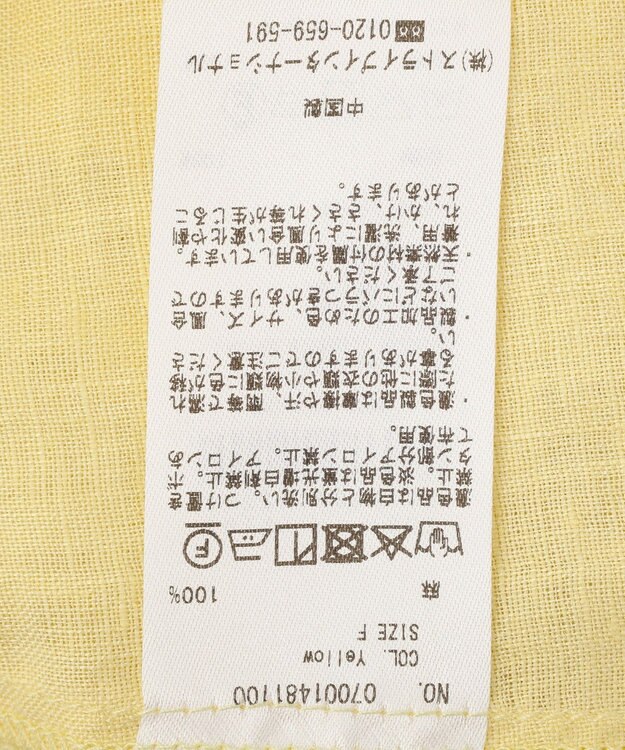 NO. 07001481100
COL. Yellow
SIZE F
麻 100%
濃色品は白物と分別洗い。つけ置き
禁止。淡色品は蛍光増白剤禁止。ボ
タン部分アイロン禁止。アイロンあ
て布使用。
・濃色製品は摩擦や汗、雨等で濡れ
た際に他の衣類や小物類に色が移
る事がありますのでご注意くださ
い。
・製品加工のため色、サイズ、風合
いなどにバラつきがありますので
ご了承ください。
・天然素材の付属を使用しています。
着用、洗濯により風合い変化や割
れ、かけ、ささくれ等が生じるこ
とがあります。
中国製
(株)ストライプインターナショナル
0120-659-591